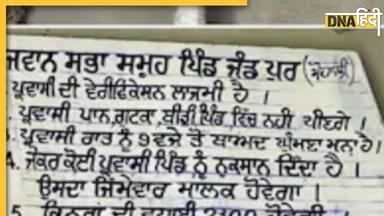 DNA हिंदी
ਜਵਾਨ ਸਭਾ ਸਮੂਹ ਪਿੰਡ ਜੰਡ ਪੁਰ (ਮੋਹਾਲੀ)
ਪ੍ਰਵਾਸੀ ਦੀ ਵੇਰੀਫਿਕੇਸਨ ਲਾਜਮੀ ਹੈ ।
ਪ੍ਰਵਾਸੀ ਪਾਨ, ਗੁਟਕਾ, ਬੀੜੀ ਪਿੰਡ ਵਿੱਚ ਨਹੀ ਪੀਣਗੇ ।
ਪ੍ਰਵਾਸੀ ਰਾਤ ਨੂੰ 9 ਵਜੇ ਤੋਂ ਬਾਅਦ ਘੁੰਮਣਾ ਮਨਾ ਹੈ।
4. ਜੇਕਰ ਕੋਈ ਪ੍ਰਵਾਸੀ ਪਿੰਡ ਨੂੰ ਨੁਕਸਾਨ ਦਿੰਦਾ ਹੈ ।
ਉਸਦਾ ਜਿੰਮੇਵਾਰ ਮਾਲਕ ਹੋਵੇਗਾ ।
5.